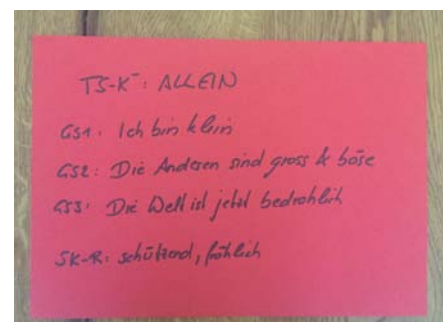 TS-K⁻: ALLEIN
GS1: Ich bin klein
GS2: Die Anderen sind gross & böse
GS3: Die Welt ist jetzt bedrohlich
SK-R: schützend, fröhlich